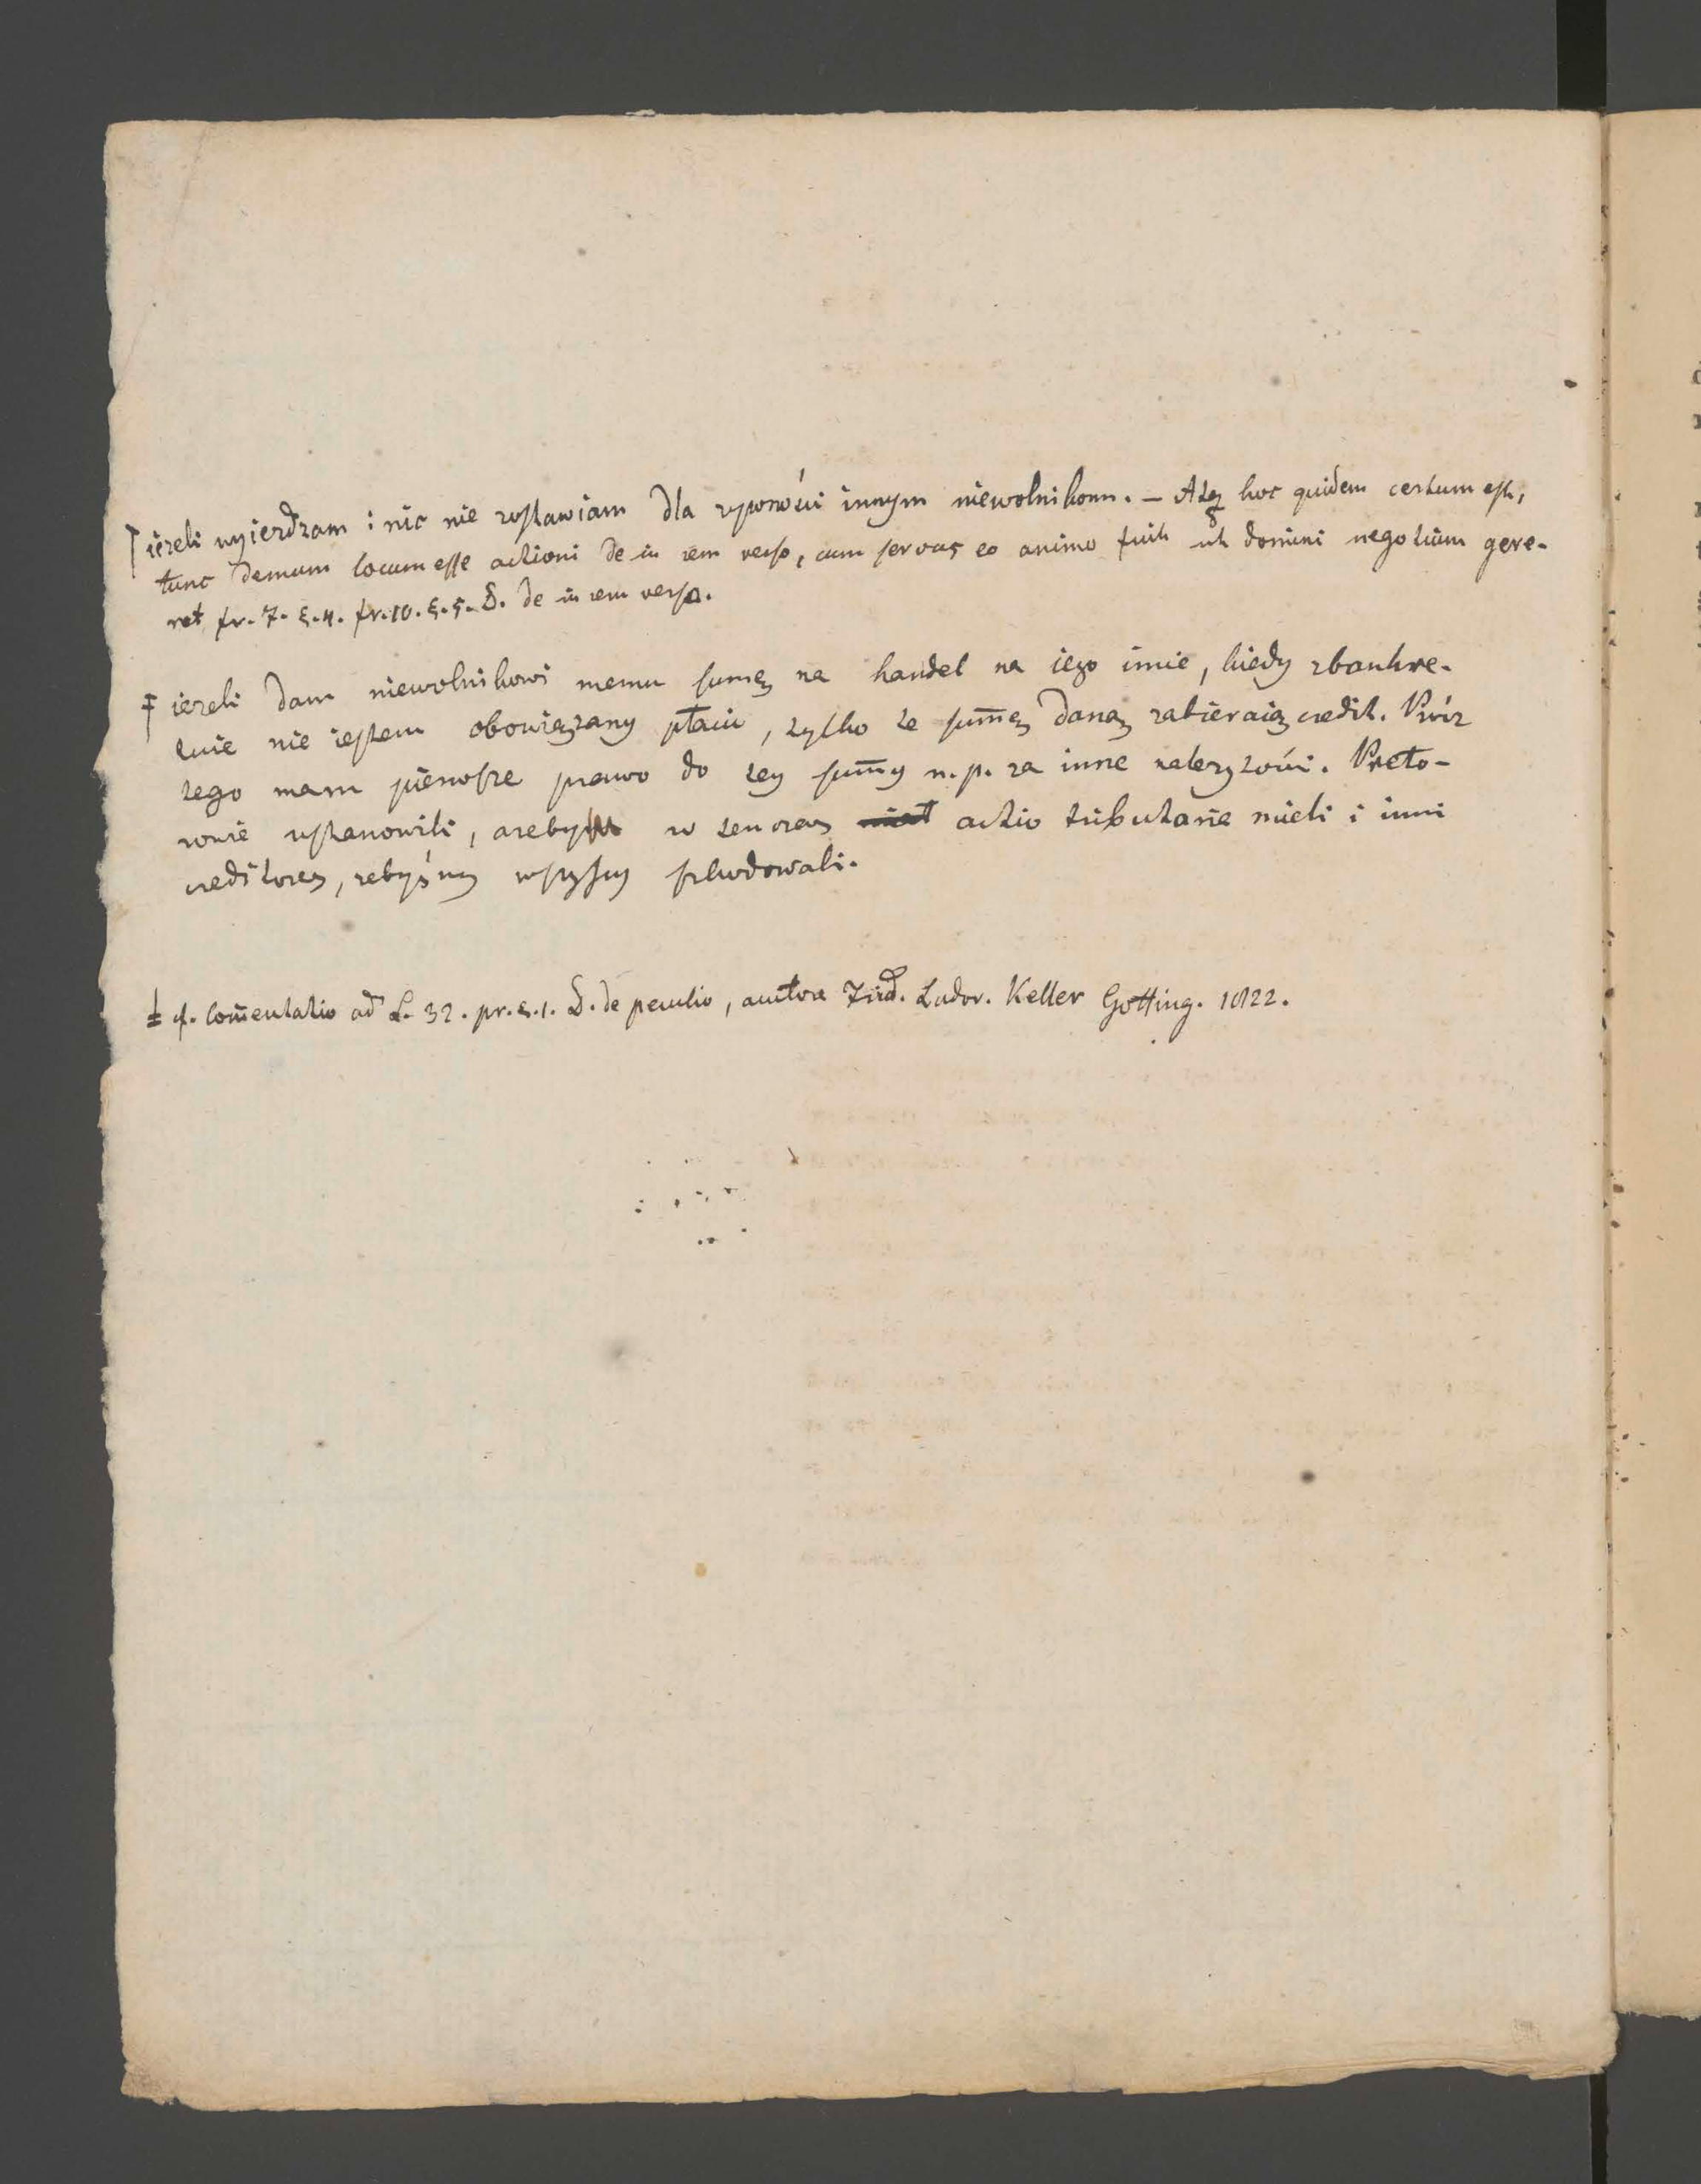 † ieżeli wyieżdżam i nic nie zostawiam dla żywności innym niewolnikom. — Atq hoc quidem certum est,
tunc demum locum esse actioni de in rem verso, cum servus eo animo fuit ut domini negotium gere-
ret fr. 7. §.4. fr. 10. §.5. D. de in rem verso.
‡ ieżeli dam niewolnikowi memu sumę na handel na iego imie, kiedy zbankru-
tuie nie iestem obowiązany płacić, tylko te sum̄ę daną zabieraią credit. Prócz
tego mam pierwsze prawo do tey sum̄y n. p. za inne należytości. Preto-
rowie ustanowili, ażeby w ten czas actio tributaria mieli i inni
creditores, żebyśmy wszyscy szkodowali.
cf. Com̄entatio ad L. 32. pr. §.1. D. de peculio, auctore Frid. Ludov. Keller Götting. 1822.